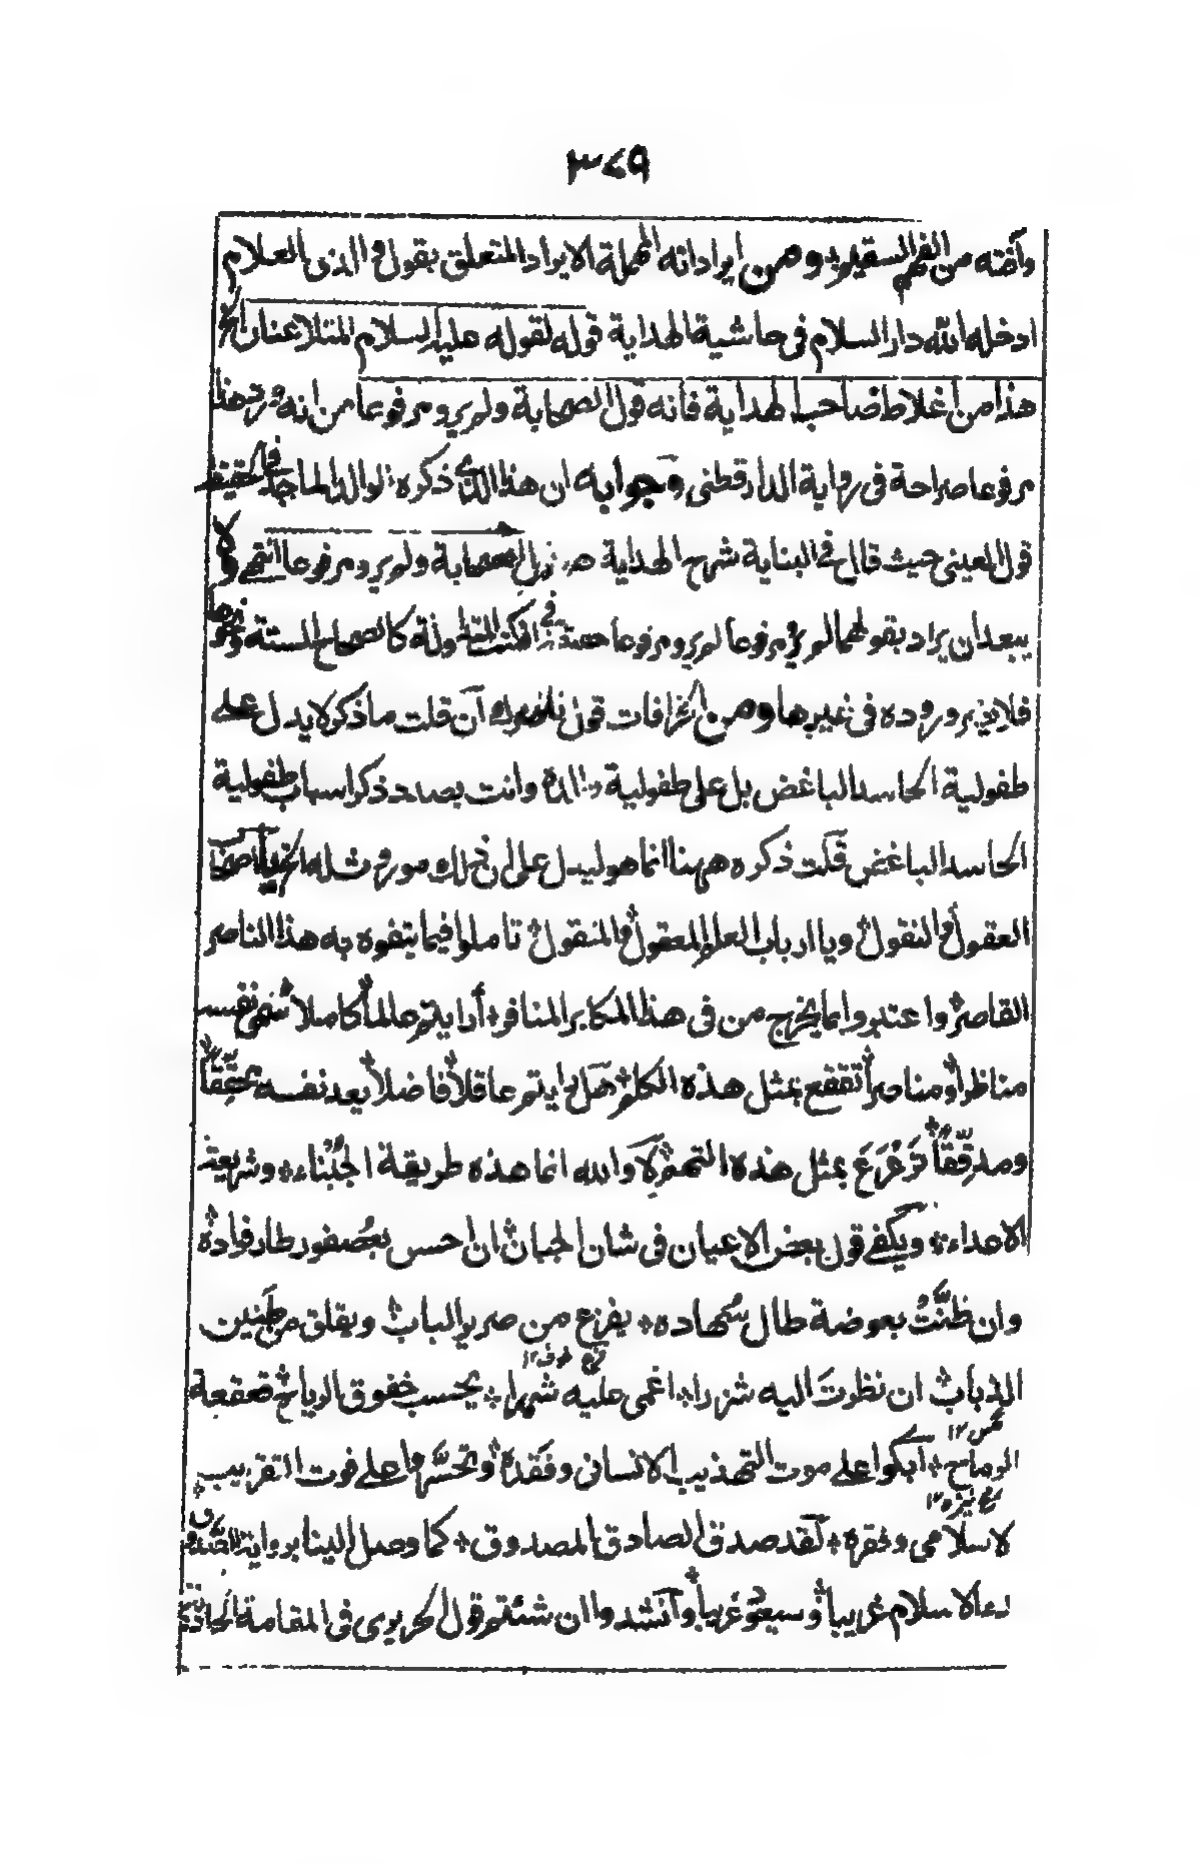 ٣٧٩
وآفته من الفهم السقيم ومن ايراداته المهملة الايراد المتعلق بقول والدى العلام
ادخله الله دار السلام فى حاشية الهداية قوله لقوله عليه السلام المتلاعنان الخ
هذا من اغلاط صاحب الهداية فانه قول الصحابة ولم يرو مرفوعا من انه ورد هذا
مرفوعا صراحة فى رواية الدارقطنى وجوابه ان هذا الذى ذكره الوالد الماجد
قول العينى حيث قال فى البناية شرح الهداية الصحابة ولم يرو مرفوعا انتهى ولا
يبعد ان يراد بقولهما لم يرو مرفوعا لم يرو مرفوعا فى الكتب المتداولة كالصحاح الستة ونحوها
فلا وروده فى غيرها ومن الخرافات قول ناصرك ان قلت ما ذكر لا يدل على
طفولية الحاسد الباغض بل على طفولية والده وانت بصدد ذكر اسباب طفولية
الحاسد الباغض قلت ذكره ههنا انما هو ليدل على ان ذلك موروث له انتهى يا اصحاب
العقول والنقول ويا ارباب العلم المعقول والمنقول تاملوا فيما يتفوه به هذا الناصر
القاصر واعتبروا بما يخرج من فى هذا المكابر المنافر أرايتم عالما كاملا سمى نفسه
مناظرا ومناصرا تقعقع بمثل هذه الكلم هل رايتم عاقلا فاضلا يعد نفسه محققا
ومدققا تزعزع بمثل هذه التهم كلا والله انما هذه طريقة الجبناء وشريعة
الاعداء ويكفى قول بعض الاعيان فى شان الجبان ان احس بعصفور طار فواده
وان ظنت بعوضة طال سهاده يفزع من صرير الباب ويقلق من طنين
الذباب ان نظرت اليه شزرا اغمى عليه شهرا يحسب خفوق الرياح قعقعة
الرماح ابكوا على موت التهذيب الانسانى وفقده وتحسروا على فوت التقريب
الاسلامى وفقره لقد صدق الصادق المصدوق كما وصل الينا برواية
بدء الاسلام غريبا وسيعود غريبا وانشدوا ان شئتم قول الحريرى فى المقامة